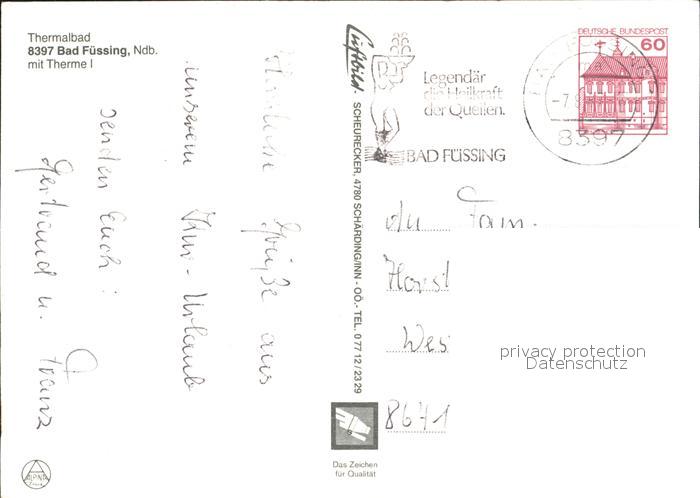 Thermalbad
8397 Bad Füssing, Ndb.
mit Therme I
Herzliche Grüße aus
unserem Kur-Urlaub
senden Euch:
Gertraud u. Franz
Luftbild. SCHEURECKER, 4780 SCHÄRDING/INN - OÖ.- TEL. 0 77 12 / 23 29
Das Zeichen
für Qualität
ALPINA
Legendär
die Heilkraft
der Quellen.
BAD FÜSSING
DEUTSCHE BUNDESPOST
60
8397
Fam.
Horst
Wes
8641
privacy protection
Datenschutz